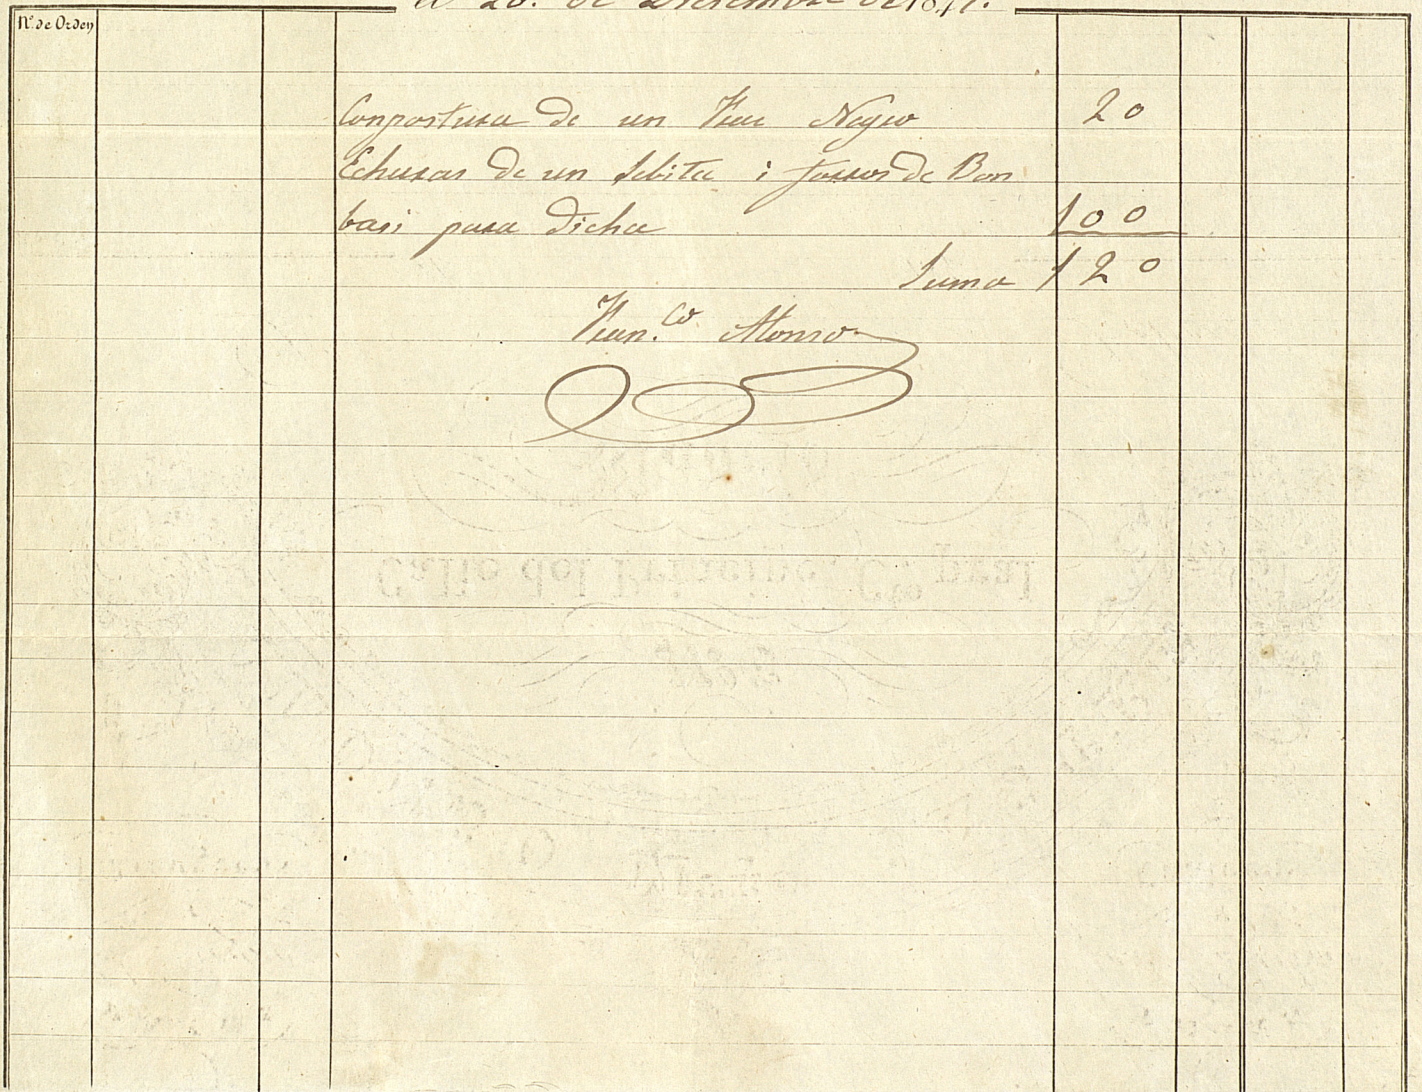 a 20. de Diciembre de 1841.
Nº. de Orden
Conpostura de un Frac Negro 20
Echuras de un Lebita i forros de Bon
basi para dicha 100
Suma 120
Fran.co Alonso